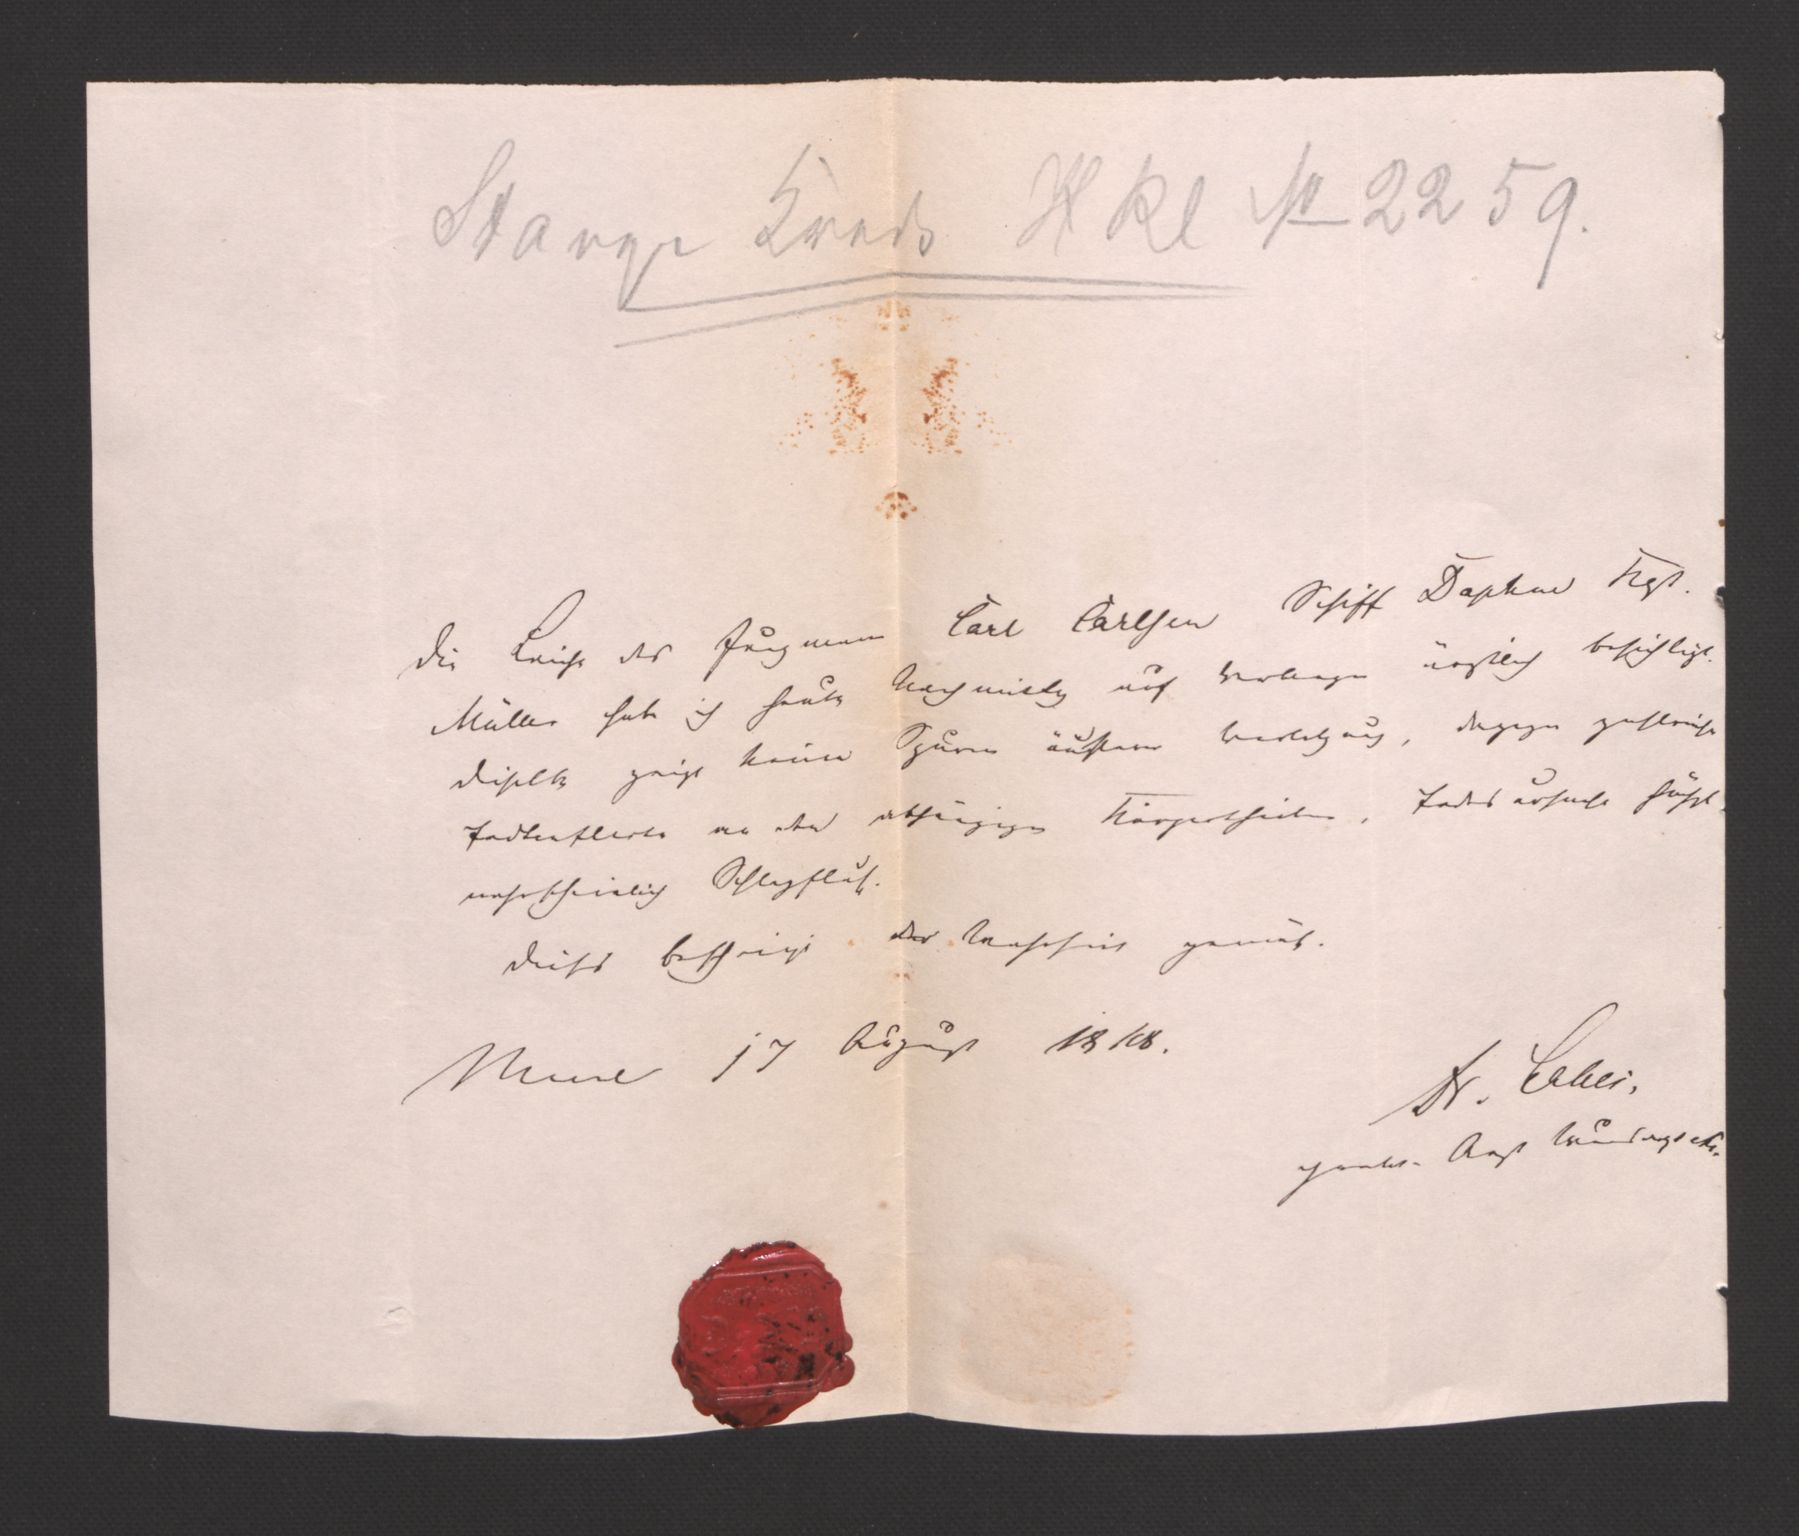 Stange Kreds H Kl № 2259.
Die Leiche des Jungmann Carl Carlsen Schiff Daphne Kpt.
Müller habe ich heute Nachmittag auf Verlangen ärztlich besichtigt.
Dieselbe zeigt keine Spuren äußerer Verletzung, dagegen zahlreiche
Todtenflecke an den abhängigen Körpertheilen, Todesursache höchst
wahrscheinlich Schlagfluß.
Dieses bescheinigt der Wahrheit gemäß.
17 August
Dr.
pract. Arzt Wundarzt etc.